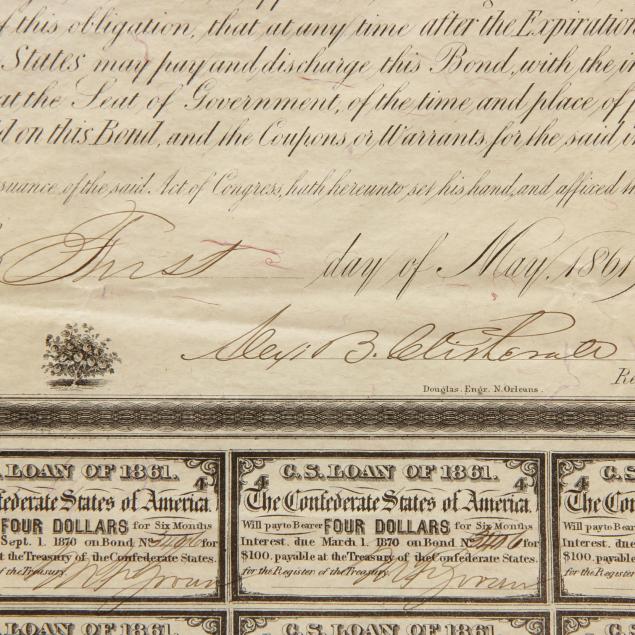 of this obligation, that at any time after the Expiration
States may pay and discharge this Bond, with the in
at the Seat of Government, of the time and place of
d on this Bond, and the Coupons or Warrants for the said in
suance of the said Act of Congress, hath hereunto set his hand, and affixed th
First day of May, 1861
Alex B. Clitherall
Re
Douglas. Engr. N. Orleans.
. LOAN OF 1861.
4
federate States of America.
FOUR DOLLARS for Six Months
Sept. 1. 1870 on Bond No for
t the Treasury of the Confederate States.
of the Treasury.
4 C.S. LOAN OF 1861. 4
The Confederate States of America.
Will pay to Bearer FOUR DOLLARS for Six Months
Interest, due March 1. 1870 on Bond No for
$100, payable at the Treasury of the Confederate States.
for the Register of the Treasury.
C.S
4
The Co
Will pay to Bear
Interest, due
$100, payable
for the Register
. LOAN OF 1861.
C.S. LOAN OF 1861.
C.S